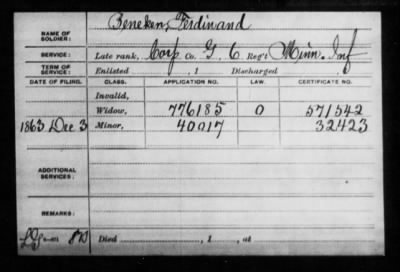 NAME OF SOLDIER: Beneken, Ferdinand
SERVICE: Late rank, Corp Co. G, 6 Reg't Minn. Inf
TERM OF SERVICE: Enlisted , 1 Discharged , 1
DATE OF FILING. CLASS. APPLICATION NO. LAW. CERTIFICATE NO.
Invalid,
Widow, 776185 O 571542
1863 Dec 3 Minor, 40017 32423
ADDITIONAL SERVICES:
REMARKS:
Died , 1 , at